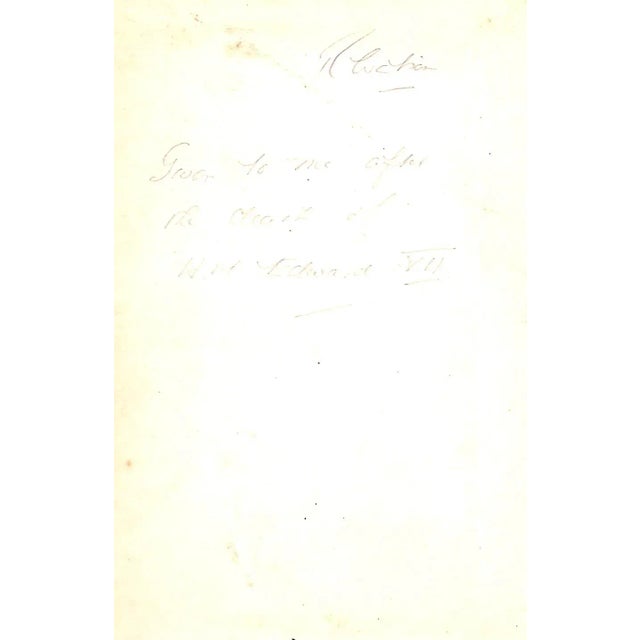 Given to me after
the death of
H.M Edward VII